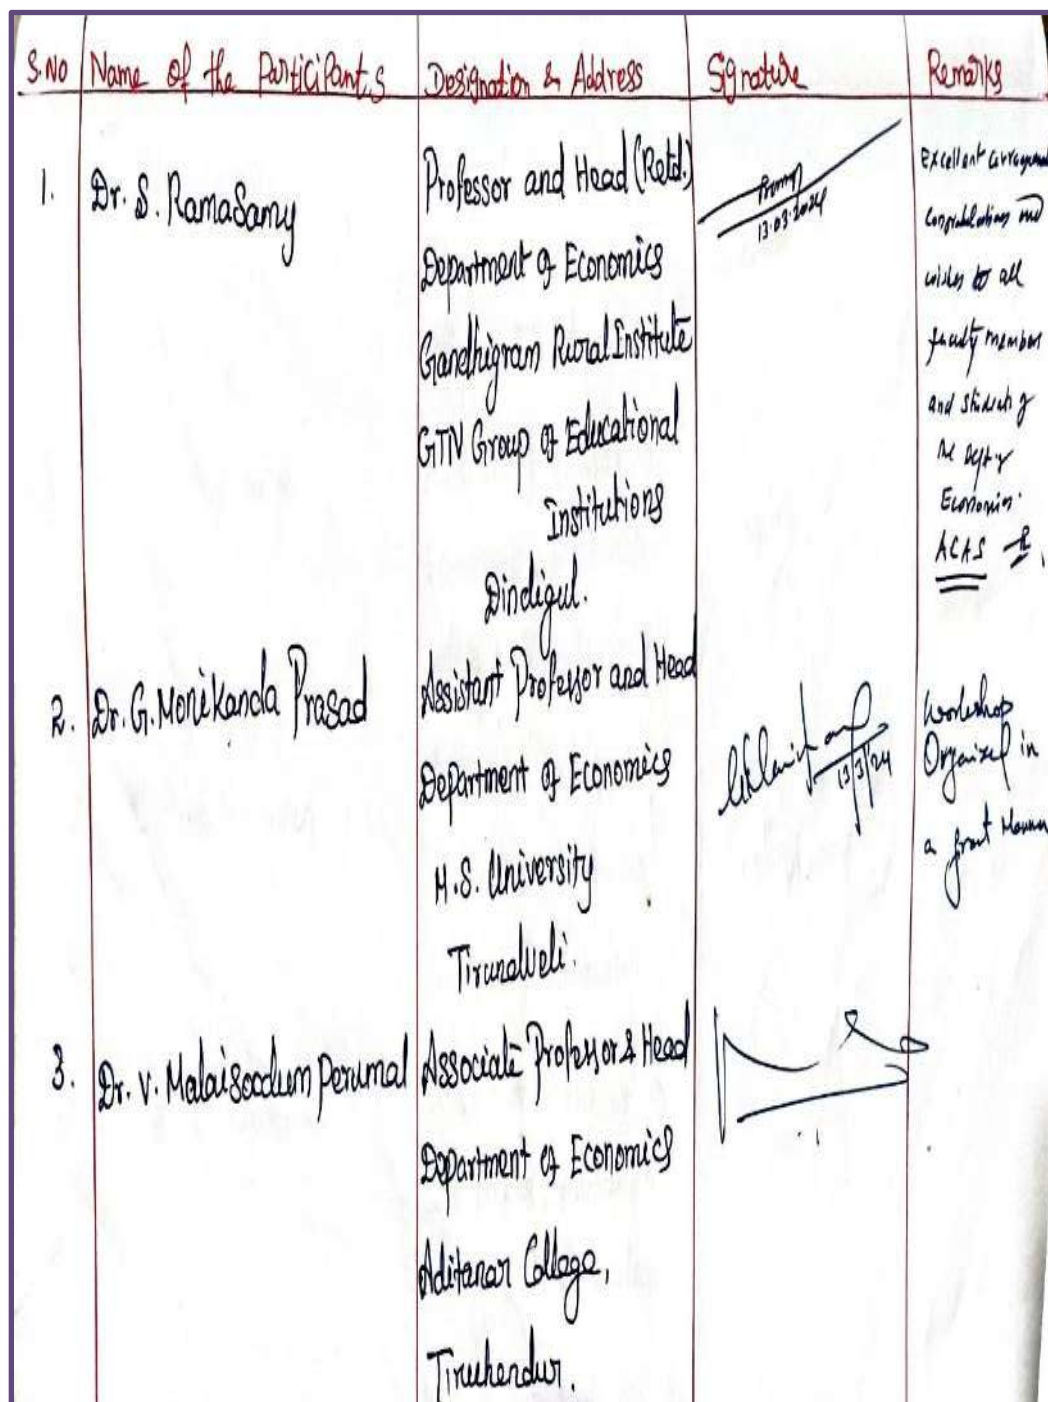 S.No Name of the Participants Designation & Address Signature Remarks
1. Dr. S. Ramasamy
Professor and Head (Retd.)
Department of Economics
Gandhigram Rural Institute
GTN Group of Educational
Institutions
Dindigul.
13.03.2024
Excellent
and
wishes to all
faculty member
and
Economics.
ACAS
2. Dr. G. Monikanda Prasad
Assistant Professor and Head
Department of Economics
M.S. University
Tirunelveli.
13/3/24
Workshop
Organized in
a
3. Dr. V. Malaisoodum perumal
Associate Professor & Head
Department of Economics
Aditanar College,
Tiruchendur.